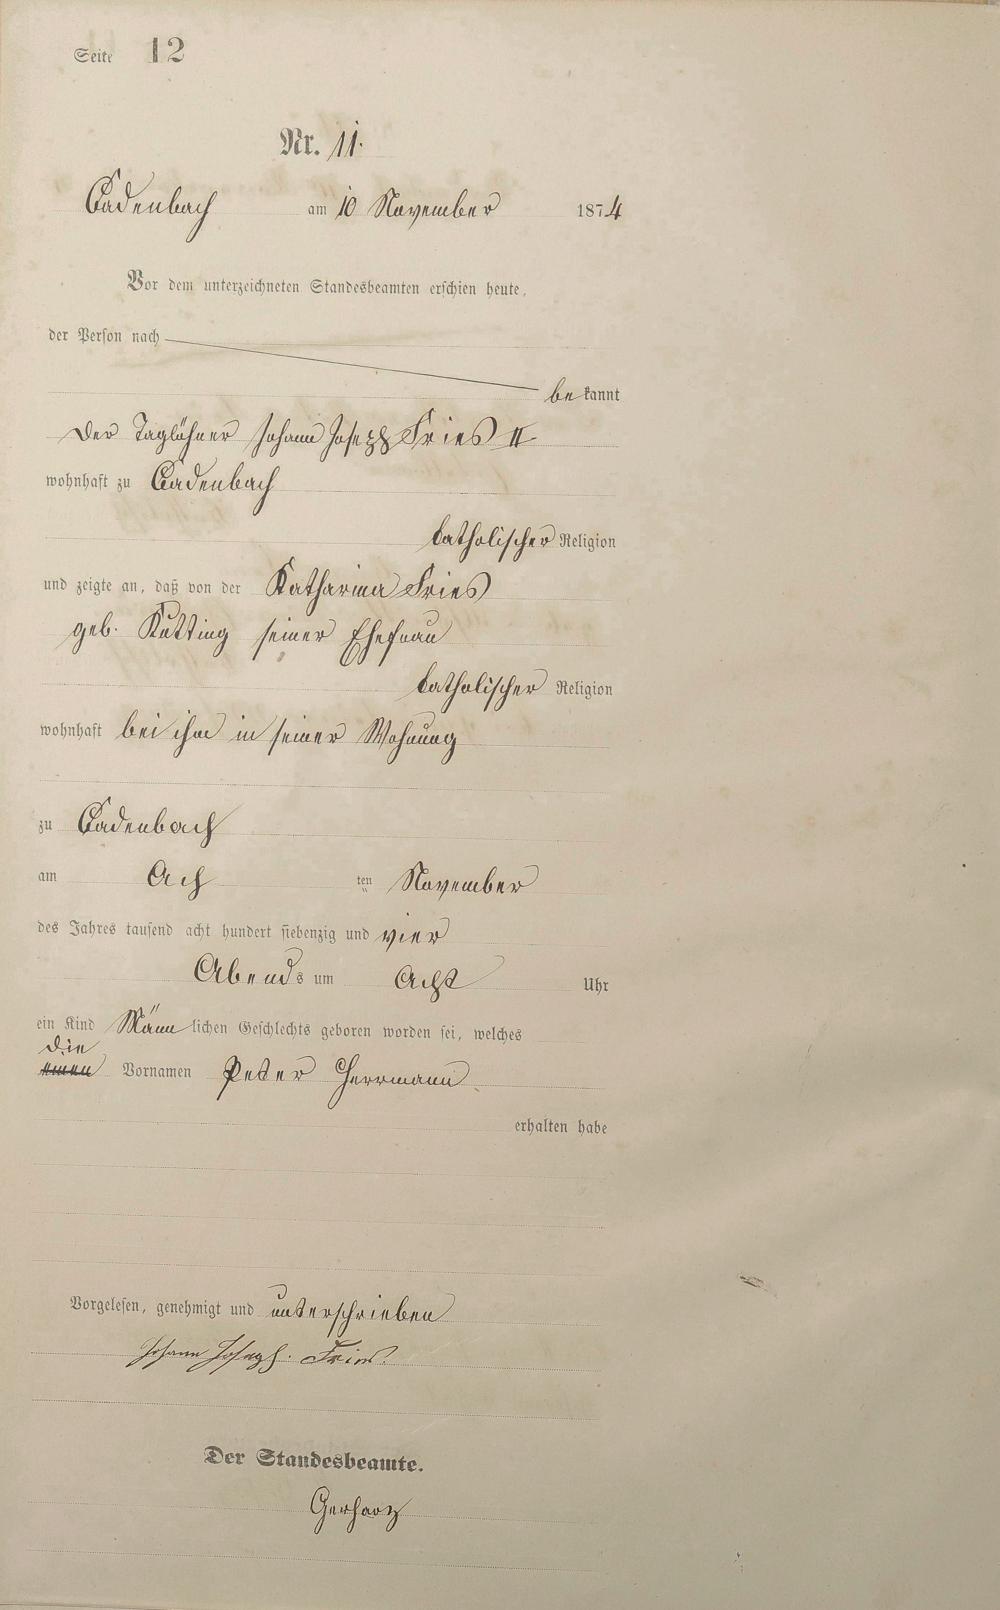 Seite 12
Nr. 11.
Cadenbach am 10 November 1874
Vor dem unterzeichneten Standesbeamten erschien heute,
der Person nach
bekannt
der Taglöhner Johann Joseph Fries II
wohnhaft zu Cadenbach
katholischer Religion
und zeigte an, daß von der Katharina Fries
geb. Kütting seiner Ehefrau
katholischer Religion
wohnhaft bei ihm in seiner Wohnung
zu Cadenbach
am Ach ten November
des Jahres tausend acht hundert siebenzig und vier
Abends um Acht Uhr
ein Kind Männlichen Geschlechts geboren worden sei, welches
die
einen Vornamen Peter Herrmann
erhalten habe
Vorgelesen, genehmigt und unterschrieben
Johann Joseph. Fries.
Der Standesbeamte.
Gerharz